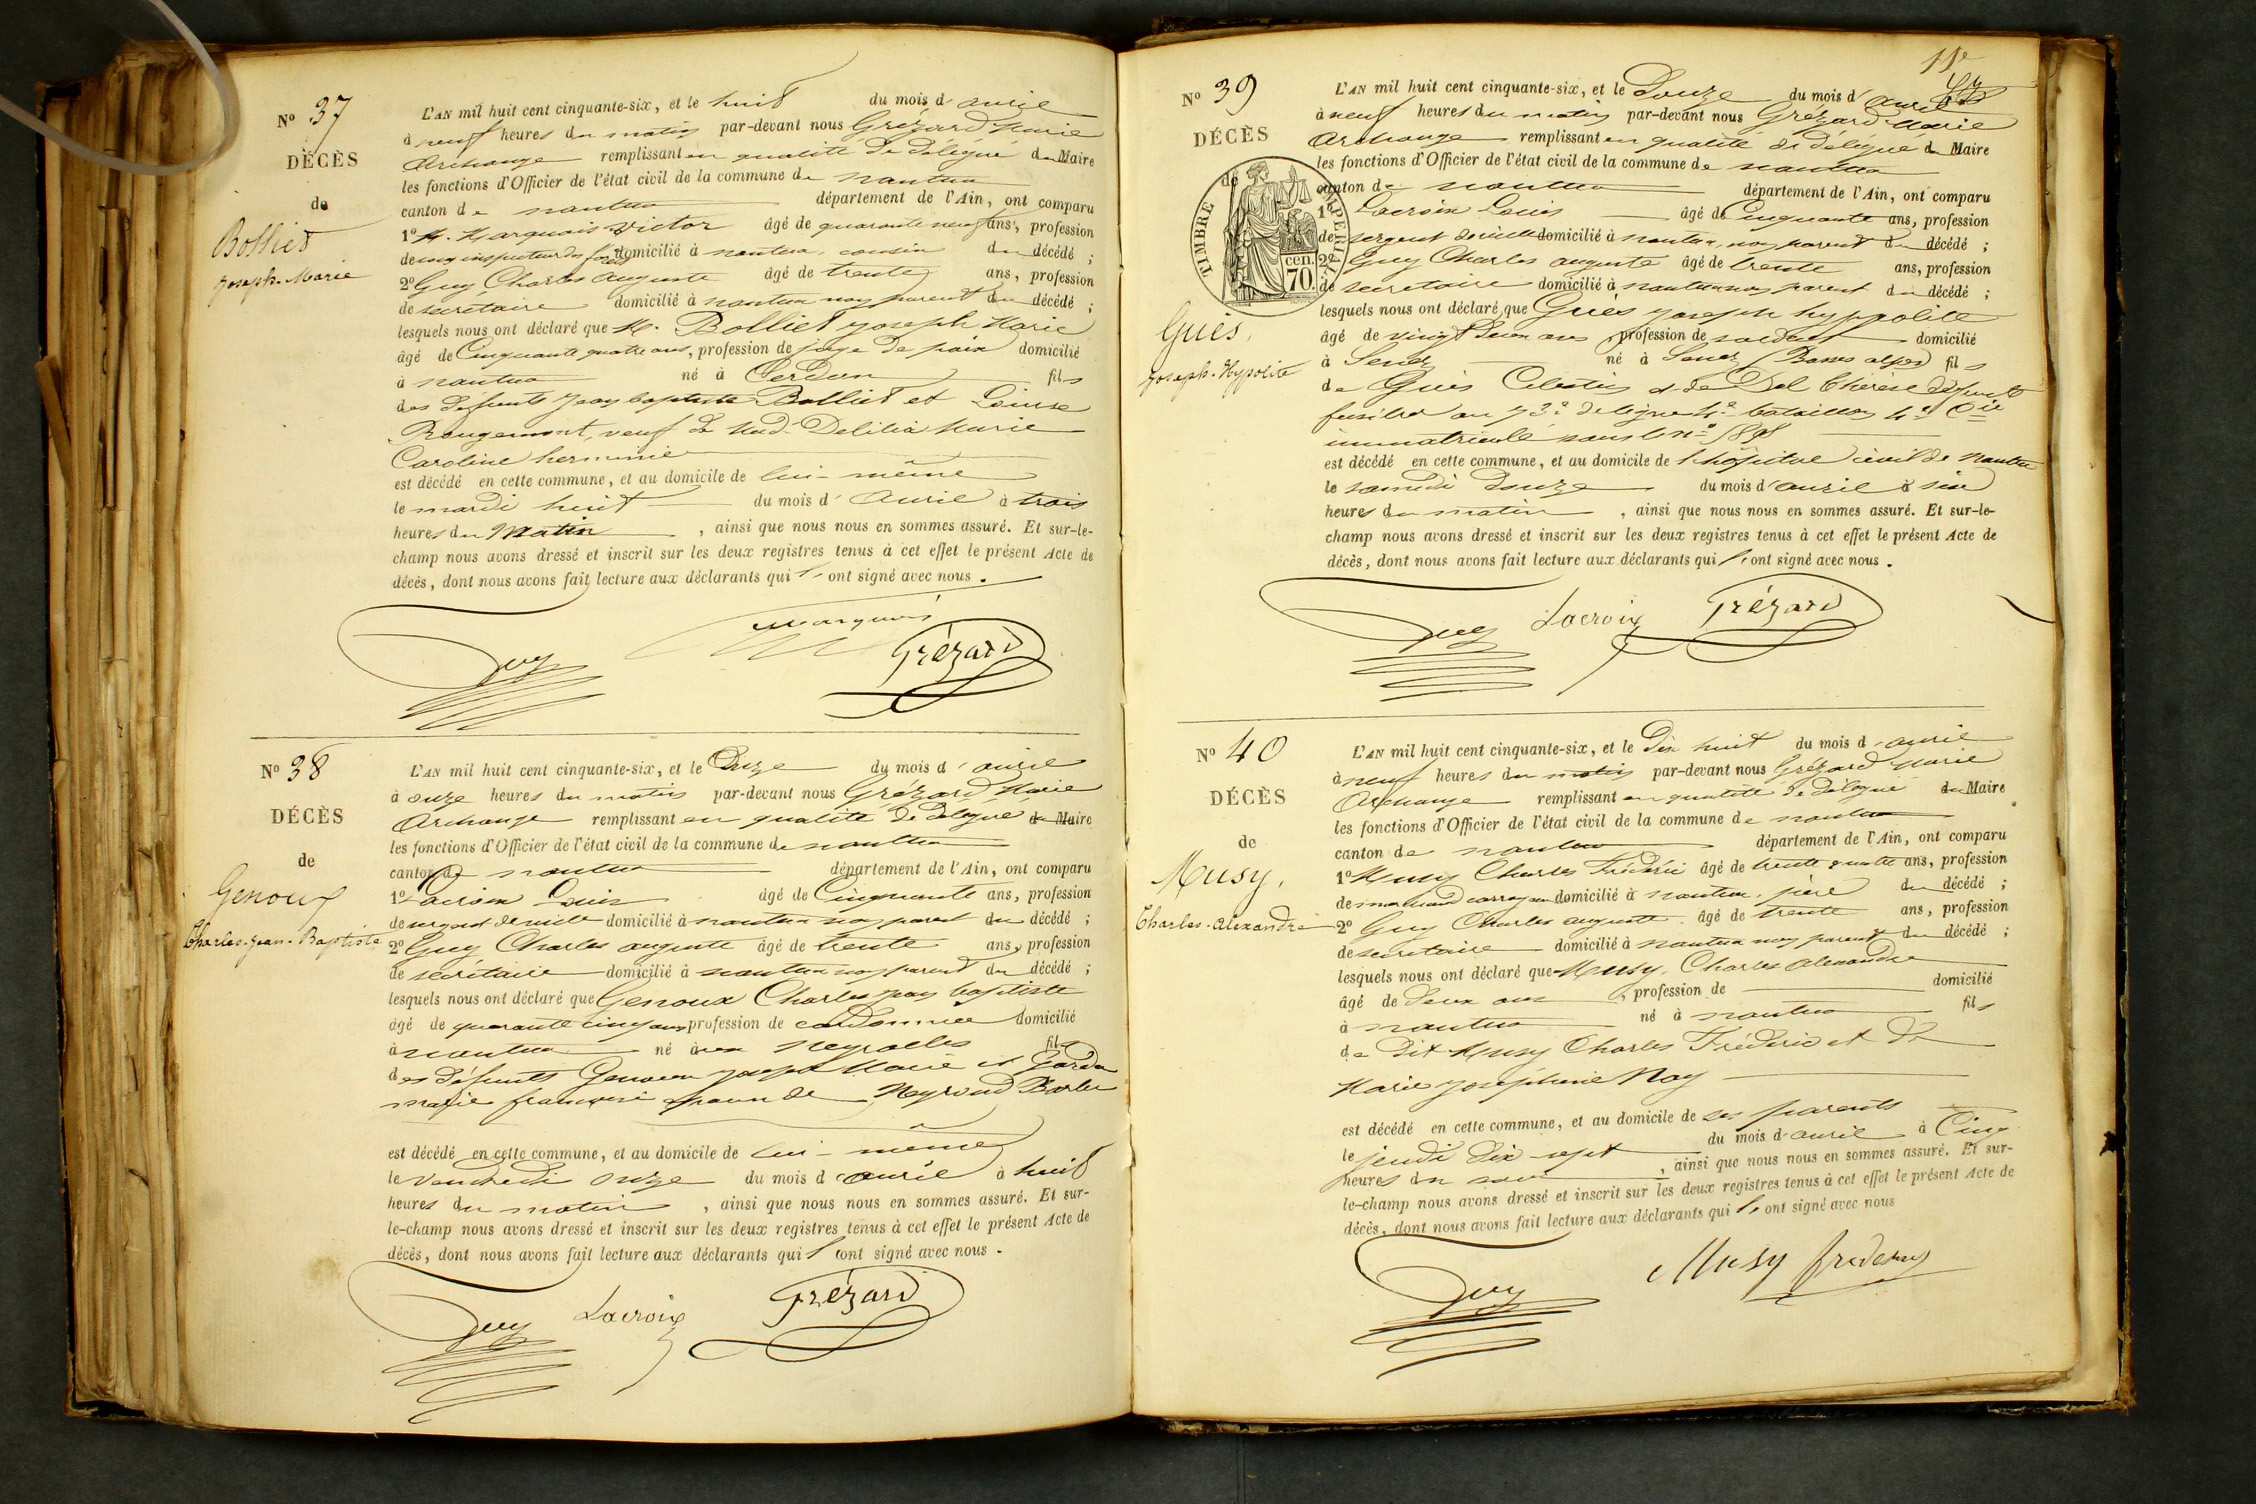 N° 37
DÉCÈS
de
Bolliet
Joseph-Marie
L'AN mil huit cent cinquante-six, et le huit du mois d'avril
à neuf heures du matin par-devant nous Grézard Marie
Archange remplissant en qualité de délégué du Maire
les fonctions d'Officier de l'état civil de la commune de nantua
canton de nantua département de l'Ain, ont comparu
1° M. Marquais Victor âgé de quarante neuf ans, profession
de domicilié à nantua, cousin du décédé ;
2° Guy Charles auguste âgé de trente ans, profession
de secrétaire domicilié à nantua non parent du décédé ;
lesquels nous ont déclaré que M. Bolliet Joseph Marie
âgé de Cinquante quatre ans, profession de juge de paix domicilié
à nantua né à Cerdon fils
des défunts Jean baptiste Bolliet et Louise
Rougemont, veuf de Delilia Marie
Caroline herminie
est décédé en cette commune, et au domicile de lui-même
le mardi huit du mois d'avril à trois
heures du Matin, ainsi que nous nous en sommes assuré. Et sur-le-
champ nous avons dressé et inscrit sur les deux registres tenus à cet effet le présent Acte de
décès, dont nous avons fait lecture aux déclarants qui l'ont signé avec nous.
Guy Marquais Grézard
N° 38
DÉCÈS
de
Genoux
Charles-Jean-Baptiste
L'AN mil huit cent cinquante-six, et le Onze du mois d'avril
à onze heures du matin par-devant nous Grézard Marie
Archange remplissant en qualité de délégué du Maire
les fonctions d'Officier de l'état civil de la commune de nantua
canton de nantua département de l'Ain, ont comparu
1° Lacroix Louis âgé de Cinquante ans, profession
de sergent de ville domicilié à nantua non parent du décédé ;
2° Guy Charles auguste âgé de trente ans, profession
de secrétaire domicilié à nantua non parent du décédé ;
lesquels nous ont déclaré que Genoux Charles jean baptiste
âgé de quarante cinq ans profession de cordonnier domicilié
à nantua né à neyrolles fils
des défunts Genoux Joseph Marie et
marie françoise époux de
est décédé en cette commune, et au domicile de lui-même
le vendredi onze du mois d'avril à huit
heures du matin, ainsi que nous nous en sommes assuré. Et sur-
le-champ nous avons dressé et inscrit sur les deux registres tenus à cet effet le présent Acte de
décès, dont nous avons fait lecture aux déclarants qui l'ont signé avec nous.
Guy Lacroix Grézard
11e
N° 39
DÉCÈS
de
TIMBRE IMPERIAL
70 cen.
Guès,
Joseph-Hypolite
L'AN mil huit cent cinquante-six, et le Douze du mois d'avril
à neuf heures du matin par-devant nous Grézard Marie
Archange remplissant en qualité de délégué du Maire
les fonctions d'Officier de l'état civil de la commune de nantua
canton de nantua département de l'Ain, ont comparu
1° Lacroix Louis âgé de Cinquante ans, profession
de sergent de ville domicilié à nantua, non parent du décédé ;
2° Guy Charles auguste âgé de trente ans, profession
de secrétaire domicilié à nantua non parent du décédé ;
lesquels nous ont déclaré que Guès Joseph hyppolite
âgé de vingt deux ans profession de soldat domicilié
à Senez né à Senez (Basses alpes) fils
de Guès Célestin et de Dol thérèse
fusilier au 73e de ligne 4e bataillon 4e Cie
immatriculé sous le n°
est décédé en cette commune, et au domicile de l'hôpital civil de Nantua
le samedi douze du mois d'avril à six
heures du matin, ainsi que nous nous en sommes assuré. Et sur-le-
champ nous avons dressé et inscrit sur les deux registres tenus à cet effet le présent Acte de
décès, dont nous avons fait lecture aux déclarants qui l'ont signé avec nous.
Guy Lacroix Grézard
N° 40
DÉCÈS
de
Musy,
Charles-Alexandre
L'AN mil huit cent cinquante-six, et le Dix huit du mois d'avril
à neuf heures du matin par-devant nous Grézard Marie
Archange remplissant en qualité de délégué du Maire
les fonctions d'Officier de l'état civil de la commune de nantua
canton de nantua département de l'Ain, ont comparu
1° Musy Charles Frédéric âgé de trente quatre ans, profession
de marchand domicilié à nantua, père du décédé ;
2° Guy Charles auguste âgé de trente ans, profession
de secrétaire domicilié à nantua non parent du décédé ;
lesquels nous ont déclaré que Musy, Charles Alexandre
âgé de Deux ans, profession de domicilié
à nantua né à nantua fils
de Dit Musy Charles Frédéric et de
Marie Joséphine Noy
est décédé en cette commune, et au domicile de ses parents
le jeudi dix-sept du mois d'avril à Cinq
heures du soir, ainsi que nous nous en sommes assuré. Et sur-
le-champ nous avons dressé et inscrit sur les deux registres tenus à cet effet le présent Acte de
décès, dont nous avons fait lecture aux déclarants qui l'ont signé avec nous
Guy Musy frederic